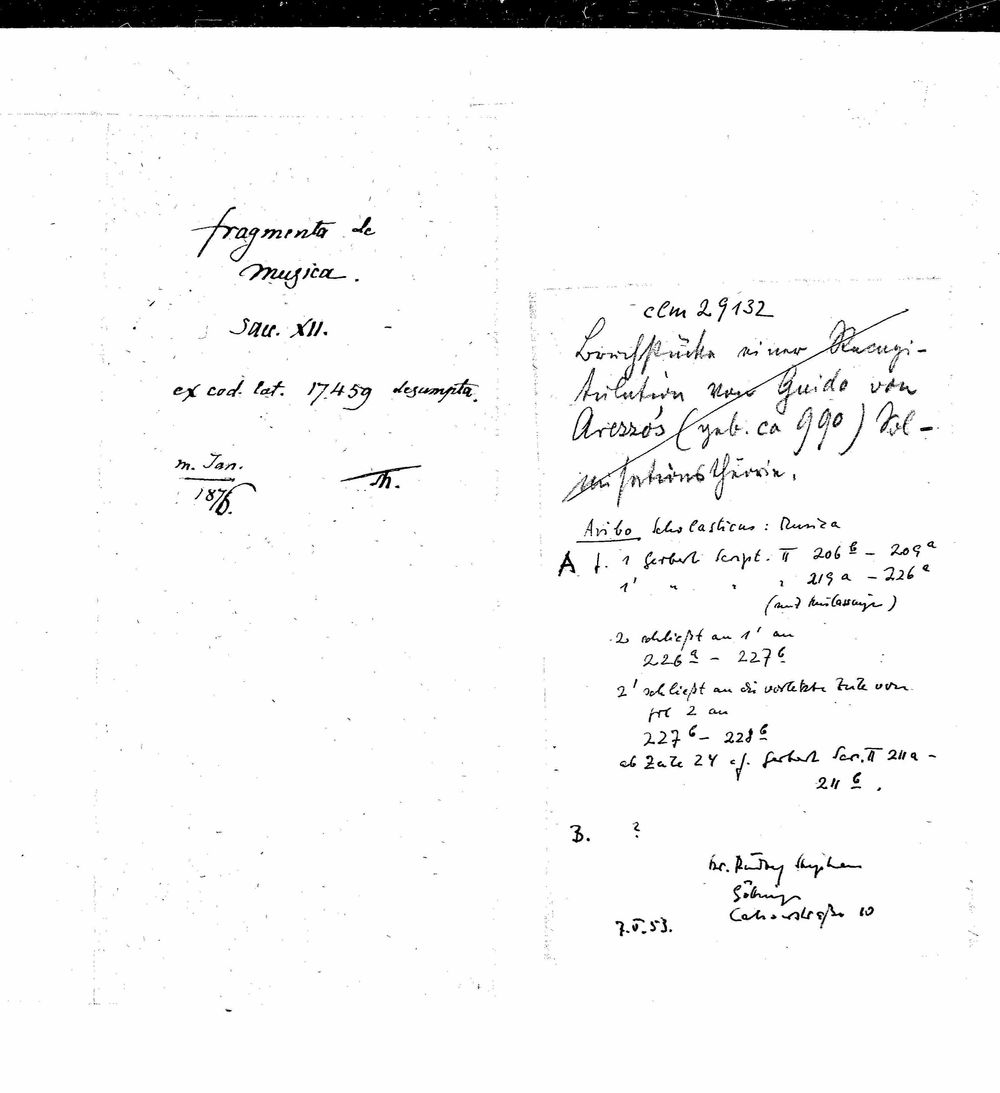 fragmenta de
musica.
Saec. XII.
ex cod. lat. 17459 desumpta.
m. Jan.
1876.
Th.
clm 29132
Bruchstücke einer Recapi-
tulation von Guido von
Arezzo's (geb. ca 990) Sol-
misationstheorie.
Aribo Scholasticus: Musica
A f. 1 Gerbert Script. II 206 b – 209 a
1' " " " 219 a – 226 a
(mit Auslassungen)
2 schließt an 1' an
226 a – 227 b
2' schließt an die vorletzte Zeile von
fol 2 an
227 b – 228 b
ab Zeile 24 cf. Gerbert Scr. II 211 a –
211 b.
B. ?
Dr. Rudolf Stephan
Göttingen
7.V.53.
10